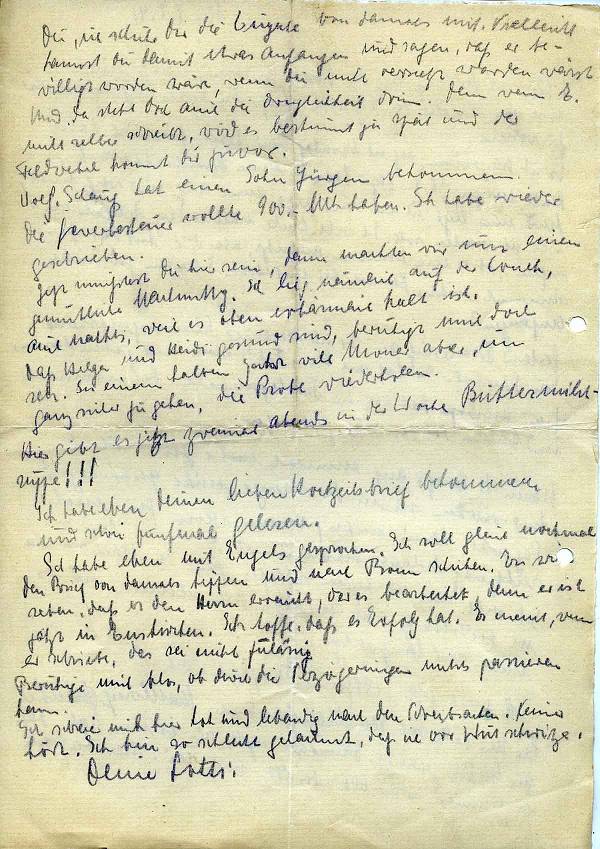 Du, ich schicke Dir die Eingabe von damals mit. Vielleicht
kannst Du damit etwas anfangen und sagen, daß es be-
willigt worden wäre, wenn Du nicht versetzt worden wärst.
Und da steht doch auch die Dringlichkeit drin. Denn wenn E.
nicht selber schreibt, wird es bestimmt zu spät und der
Feldwebel kommt Dir zuvor.
Wolf. hat einen Sohn Jürgen bekommen.
Die Gewerbesteuer wollte 900.- Mk haben. Ich habe wieder
geschrieben.
Jetzt müßtest Du hier sein, dann machten wir uns einen
gemütlichen. Ich lieg nämlich auf der Couch,
auch nachts, weil es oben erbärmlich kalt ist.
Daß Helga und Heidi gesund sind, beruhigt mich doch
sehr. In einem halben Jahr will Moni aber, um
ganz sicher zu gehen, die Probe wiederholen.
Hier gibt es jetzt zweimal abends in der Woche Buttermilch-
suppe!!!
Ich habe eben Deinen lieben Hochzeitsbrief bekommen
und schon fünfmal gelesen.
Ich habe eben mit Engels gesprochen. Ich soll gleich nochmal
den Brief von damals tippen und nach Bonn schicken. Zu
sehen, daß er den Herrn erreicht, der es bearbeitet, denn er ist
jetzt in Euskirchen. Ich hoffe, daß es Erfolg hat. Er meint, wenn
er schriebe, das sei nicht zulässig
Beruhige mich bloß, ob durch die Verzögerungen nichts passieren
kann.
Ich schreie mich hier tot und lebendig nach den. Keiner
hört. Ich bin so schlecht gelaunt, daß ich vor Wut schwitze.
Deine Lotti.